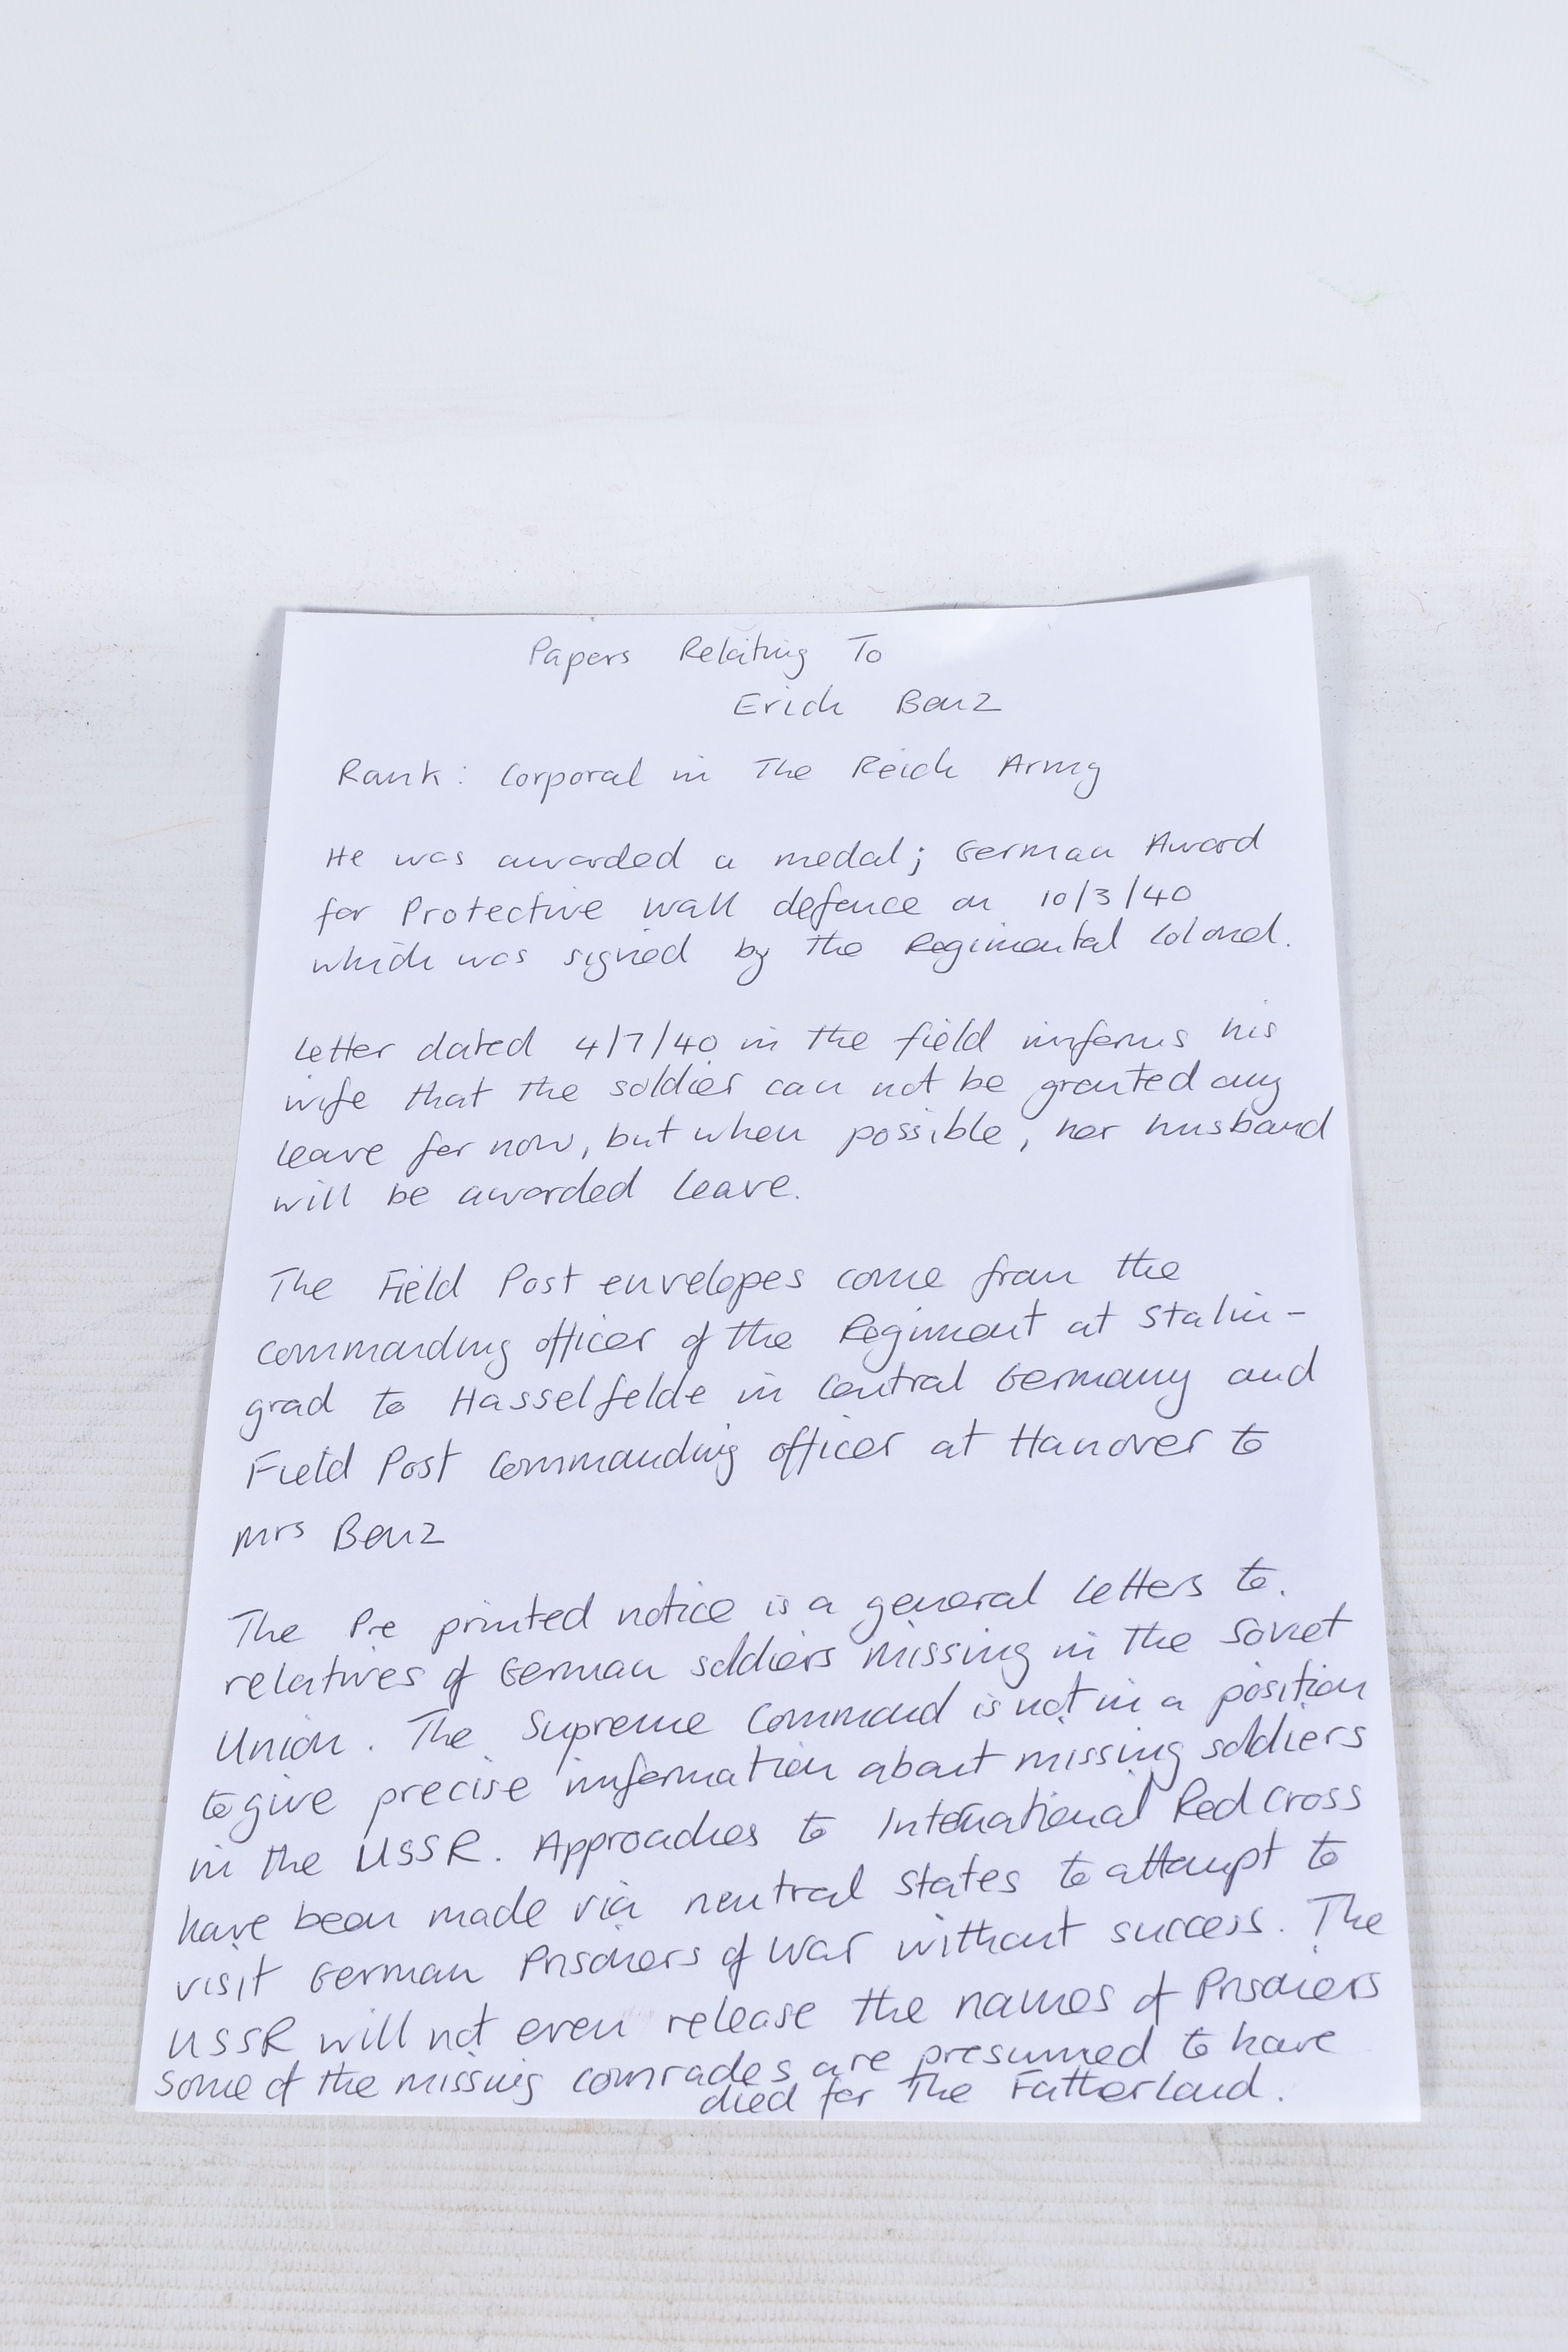 Papers Relating To
Erich Benz
Rank: Corporal in The Reich Army
He was awarded a medal; German Award
for Protective wall defence on 10/3/40
which was signed by the Regimental Colonel.
Letter dated 4/7/40 in the field informs his
wife that the soldier can not be granted any
leave for now, but when possible, her husband
will be awarded leave.
The Field Post envelopes come from the
commanding officer of the Regiment at Stalin-
grad to Hasselfelde in Central Germany and
Field Post Commanding officer at Hanover to
Mrs Benz
The Pre printed notice is a general letters to.
relatives of German soldiers missing in the Soviet
Union. The Supreme Command is not in a position
to give precise information about missing soldiers
in the USSR. Approaches to International Red Cross
have been made via neutral states to attempt to
visit German Prisoners of War without success. The
USSR will not even release the names of Prisoners
some of the missing comrades are presumed to have
died for the Fatherland.